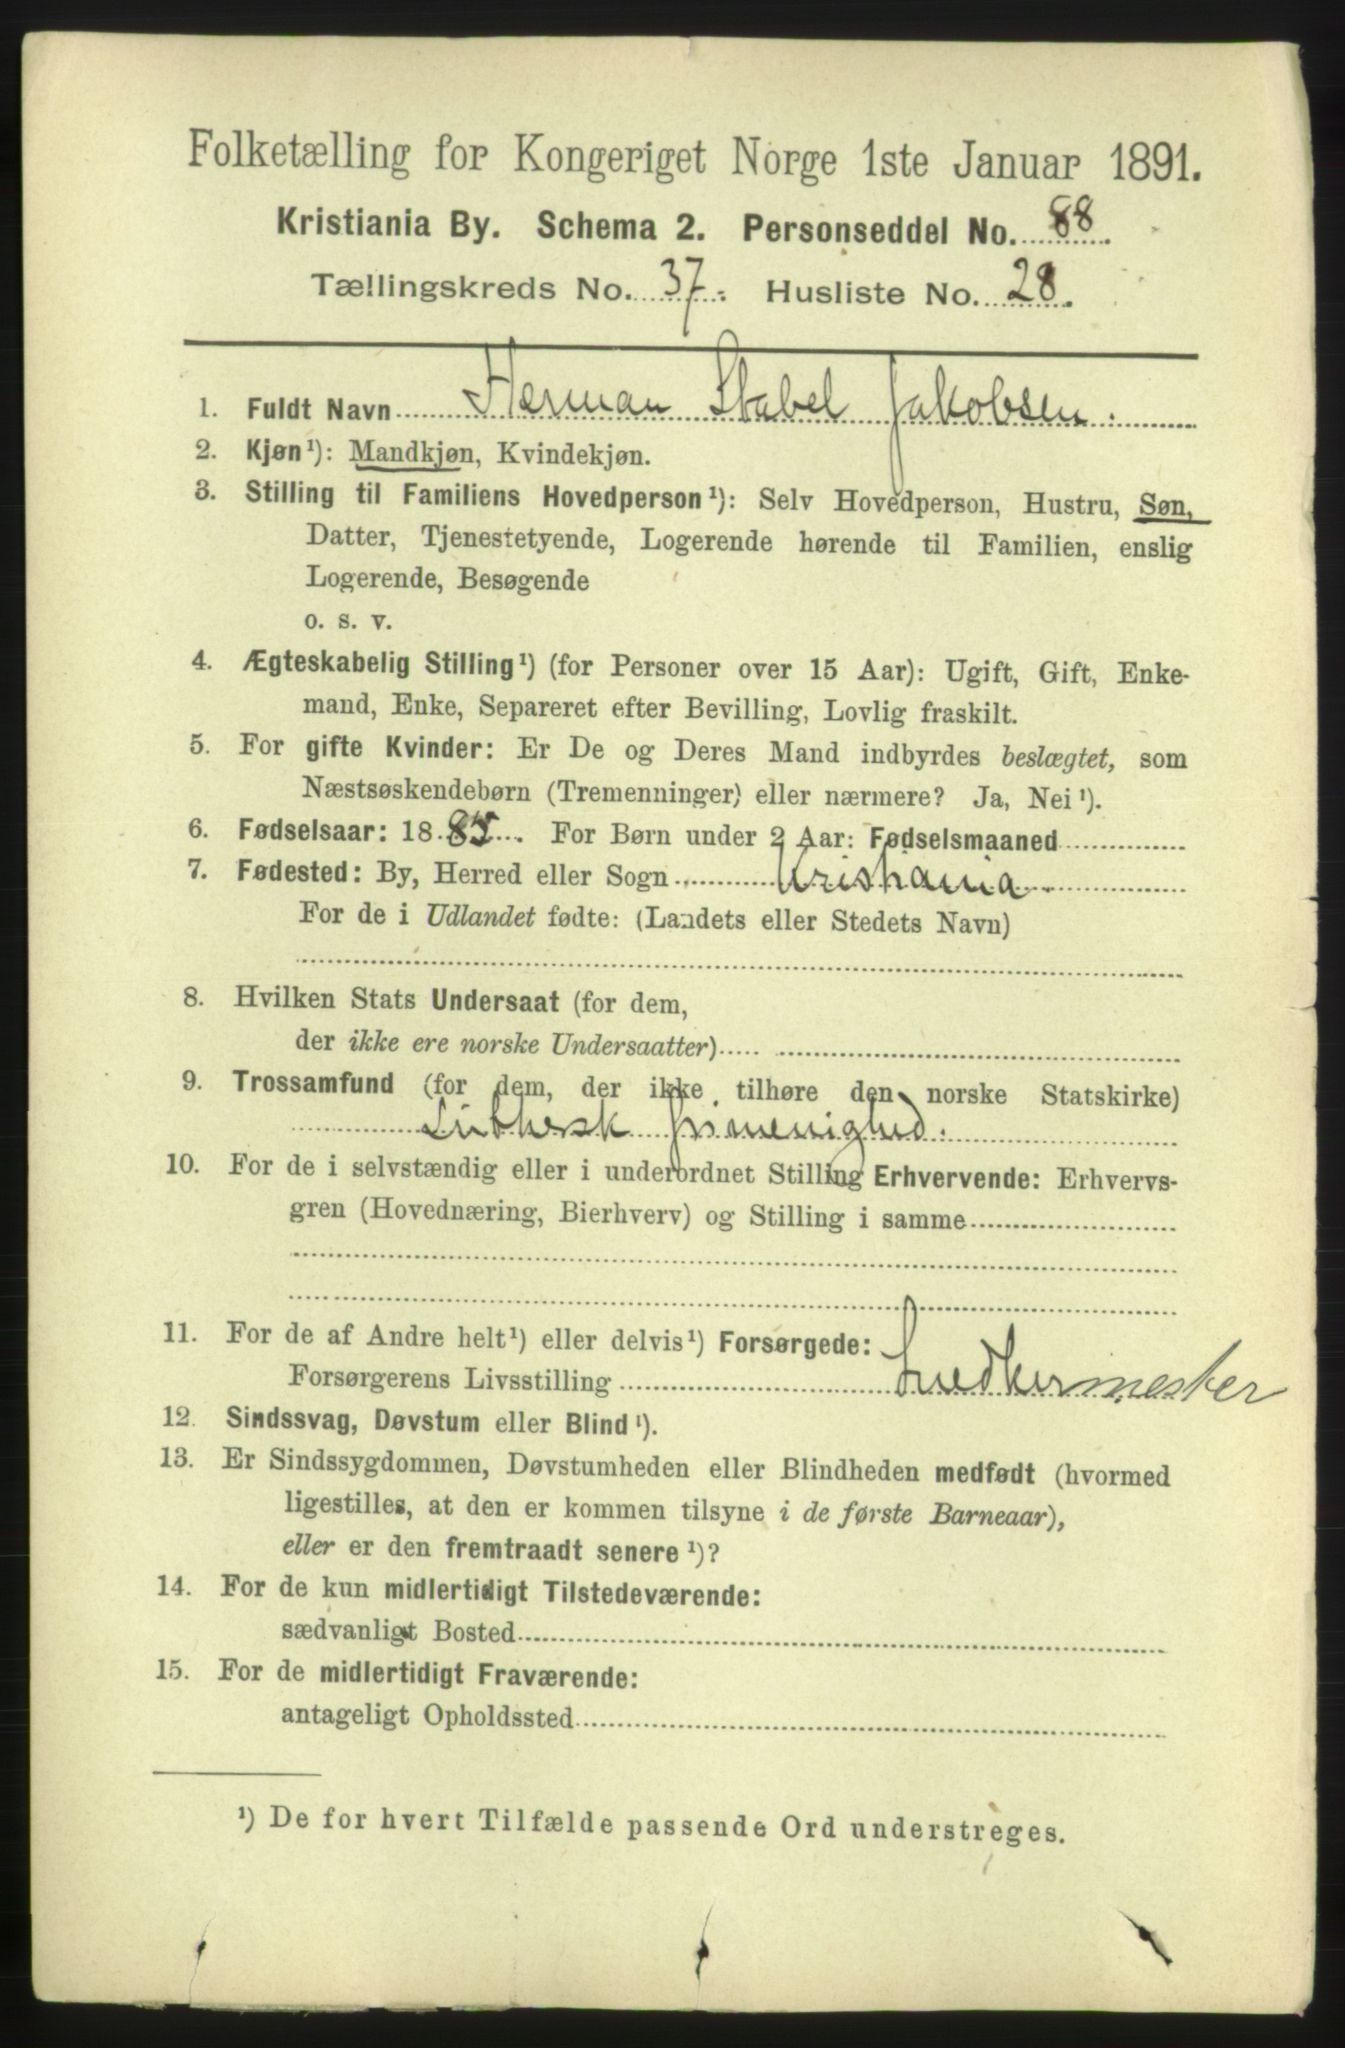 Folketælling for Kongeriget Norge 1ste Januar 1891.
Kristiania By. Schema 2. Personseddel No. 88.
Tællingskreds No. 37. Husliste No. 28.
1. Fuldt Navn Herman Stabel Jakobsen.
2. Kjøn¹): Mandkjøn, Kvindekjøn.
3. Stilling til Familiens Hovedperson¹): Selv Hovedperson, Hustru, Søn,
Datter, Tjenestetyende, Logerende hørende til Familien, enslig
Logerende, Besøgende
o. s. v.
4. Ægteskabelig Stilling¹) (for Personer over 15 Aar): Ugift, Gift, Enke-
mand, Enke, Separeret efter Bevilling, Lovlig fraskilt.
5. For gifte Kvinder: Er De og Deres Mand indbyrdes beslægtet, som
Næstsøskendebørn (Tremenninger) eller nærmere? Ja, Nei¹).
6. Fødselsaar: 18 85. For Børn under 2 Aar: Fødselsmaaned
7. Fødested: By, Herred eller Sogn Kristiania.
For de i Udlandet fødte: (Landets eller Stedets Navn)
8. Hvilken Stats Undersaat (for dem,
der ikke ere norske Undersaatter)
9. Trossamfund (for dem, der ikke tilhøre den norske Statskirke)
Luthersk frimenighed.
10. For de i selvstændig eller i underordnet Stilling Erhvervende: Erhvervs-
gren (Hovednæring, Bierhverv) og Stilling i samme
11. For de af Andre helt¹) eller delvis¹) Forsørgede:
Forsørgerens Livsstilling Snedkermester
12. Sindssvag, Døvstum eller Blind¹).
13. Er Sindssygdommen, Døvstumheden eller Blindheden medfødt (hvormed
ligestilles, at den er kommen tilsyne i de første Barneaar),
eller er den fremtraadt senere¹)?
14. For de kun midlertidigt Tilstedeværende:
sædvanligt Bosted
15. For de midlertidigt Fraværende:
antageligt Opholdssted
¹) De for hvert Tilfælde passende Ord understreges.